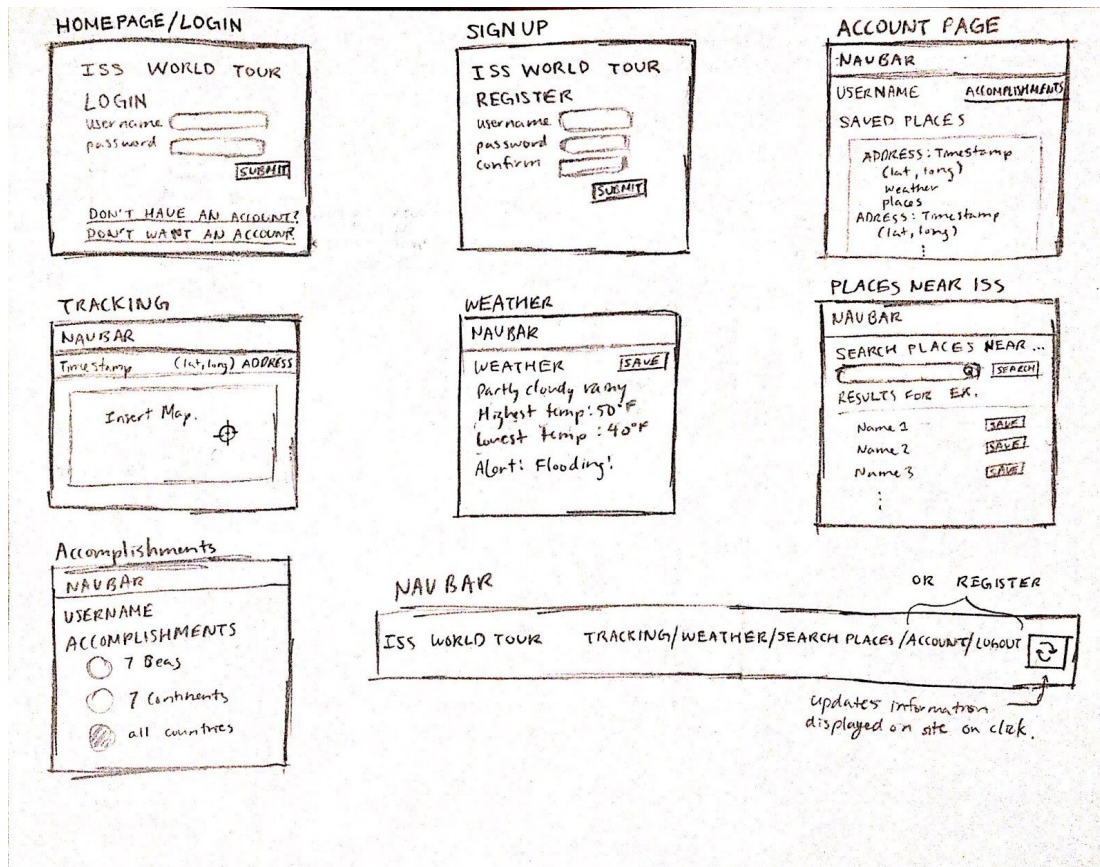 HOMEPAGE/LOGIN
ISS WORLD TOUR
LOGIN
username
password
SUBMIT
DON'T HAVE AN ACCOUNT?
DON'T WANT AN ACCOUNT?
SIGN UP
ISS WORLD TOUR
REGISTER
username
password
confirm
SUBMIT
ACCOUNT PAGE
NAVBAR
USERNAME ACCOMPLISHMENTS
SAVED PLACES
ADDRESS: Timestamp
(lat, long)
weather
places
ADRESS: Timestamp
(lat, long)
TRACKING
NAVBAR
Timestamp (lat, long) ADDRESS
Insert Map.
WEATHER
NAVBAR
WEATHER SAVE
Partly cloudy rainy
Highest temp: 50°F
Lowest temp: 40°F
Alert: Flooding!
PLACES NEAR ISS
NAVBAR
SEARCH PLACES NEAR ...
SEARCH
RESULTS FOR EX.
Name 1 SAVE
Name 2 SAVE
Name 3 SAVE
Accomplishments
NAVBAR
USERNAME
ACCOMPLISHMENTS
7 Seas
7 Continents
all countries
NAVBAR
OR REGISTER
ISS WORLD TOUR TRACKING/WEATHER/SEARCH PLACES/ACCOUNT/LOGOUT
updates information
displayed on site on click.